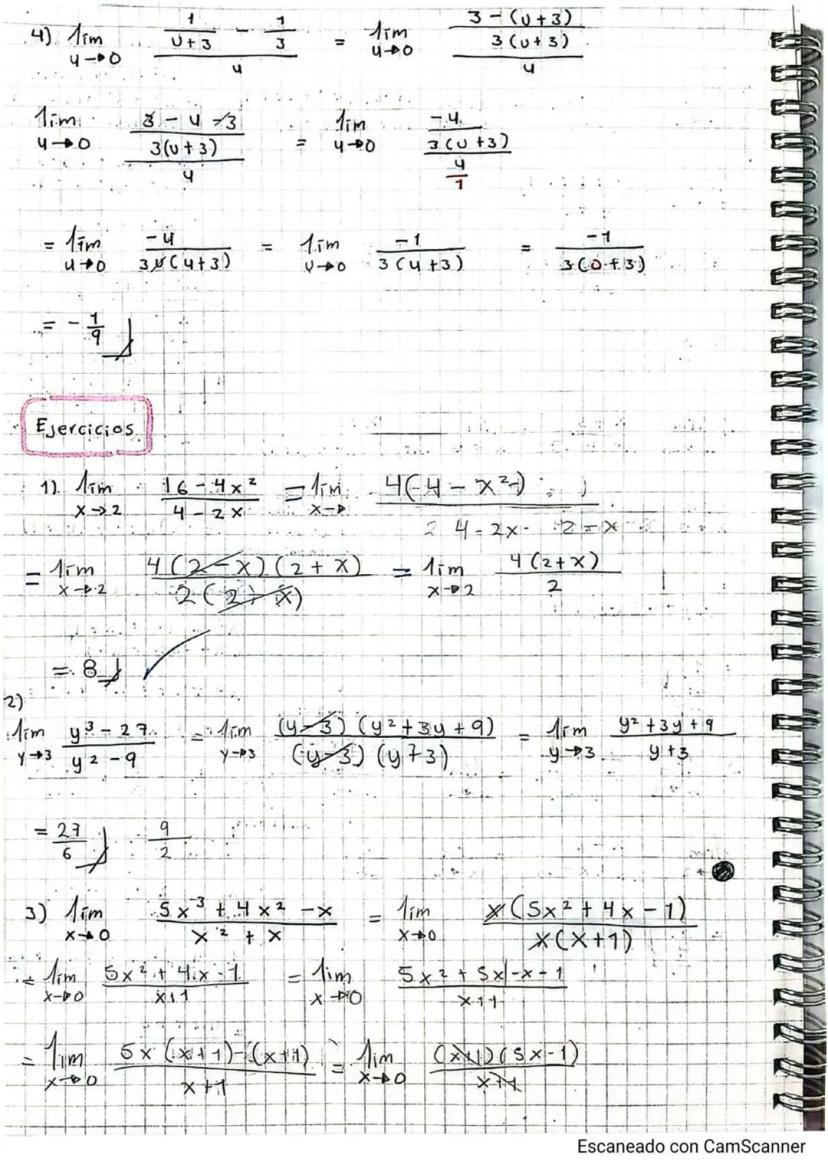 4) lim u→0 (1/(u+3) - 1/3)/u = lim u→0 ((3-(u+3))/(3(u+3)))/u
lim u→0 ((3-u-3)/(3(u+3)))/u = lim u→0 (-u/(3(u+3)))/(u/1)
= lim u→0 -u/(3u(u+3)) = lim u→0 -1/(3(u+3)) = -1/(3(0+3))
= -1/9
Ejercicios
1). lim x→2 (16-4x²)/(4-2x) = lim x→ 4(4-x²)/(4-2x) 2-x
= lim x→2 (4(2-x)(2+x))/(2(2-x)) = lim x→2 (4(2+x))/2
= 8
2)
lim y→3 (y³-27)/(y²-9) = lim y→3 ((y-3)(y²+3y+9))/((y-3)(y+3)) = lim y→3 (y²+3y+9)/(y+3)
= 27/6 9/2
3) lim x→0 (5x³+4x²-x)/(x²+x) = lim x→0 (x(5x²+4x-1))/(x(x+1))
= lim x→0 (5x²+4x-1)/(x+1) = lim x→0 (5x²+5x-x-1)/(x+1)
= lim x→0 (5x(x+1)-(x+1))/(x+1) = lim x→0 ((x+1)(5x-1))/(x+1)
Escaneado con CamScanner